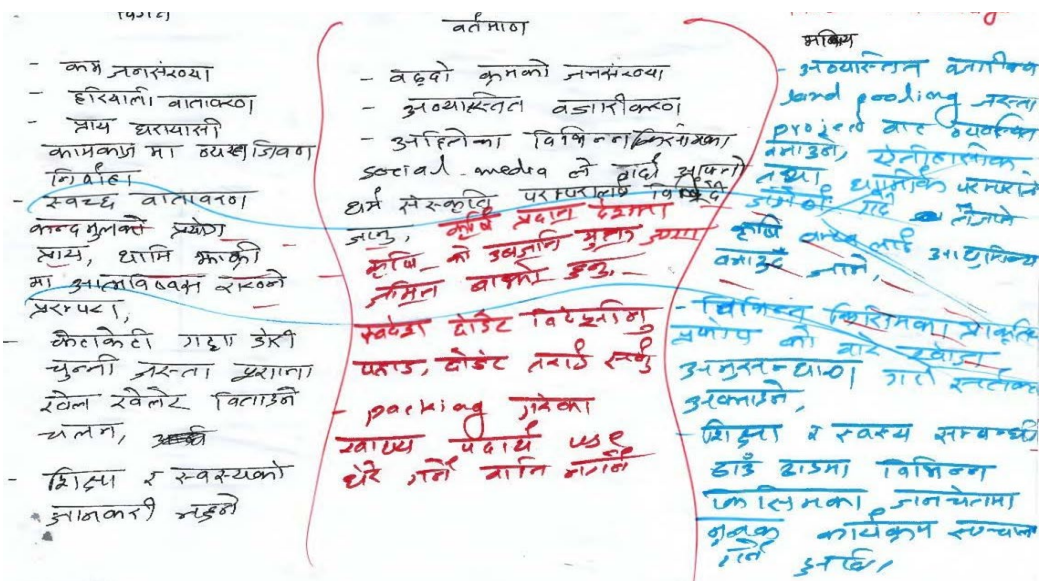 विगत
- कम जनसंख्या
- हरियाली वातावरण
- प्राय घरायासी
कामकाज मा व्यस्त जिवन
निर्वाह
- स्वच्छ वातावरण
कन्दमुलको प्रयोग
प्राय, धामि झाक्री
मा आत्मविश्वास राख्ने
परम्परा,
- केटाकेटी गट्टा डोरी
चुन्नी जस्ता पुराना
खेल खेलेर विताउने
चलन,
- शिक्षा र स्वस्थ्यको
जानकारी नहुने
वर्तमान
- वढ्दो क्रमको जनसंख्या
- अव्यास्तित वजारीकरण
- अहिलेका विभिन्न किसिमका
social-media ले गर्दा आफ्नो
धर्म संस्कृति परम्परालाई
जानु, कृषि प्रदान देशमा
कृषि को उब्जानि मुलत
जमिन बाझो हुनु,
स्वदेश छोडेर विदेशिनु
पहाड, छोडेर तराई सर्नु
- packing गरेका
खाद्य पदार्थ use
धेरै गर्ने वानि
भविष्य
- अव्यास्तित
land pooling जस्ता
project बाट व्यवस्थित
बनाउने, ऐतीहासीक
तथा धार्मिक परम्पराले
लैजाने
कृषि लाई आधुनिक
बनाउँदै जाने,
- विभिन्न किसिमका प्राकृतिक
प्रकोप को वारे खोज
अनुसन्धान गरी
- शिक्षा र स्वस्थ्य सम्बन्धी
ठाउँ ठाउमा विभिन्न
किसिमका जनचेतना
मुलक कार्यक्रम सञ्चालन
गर्ने